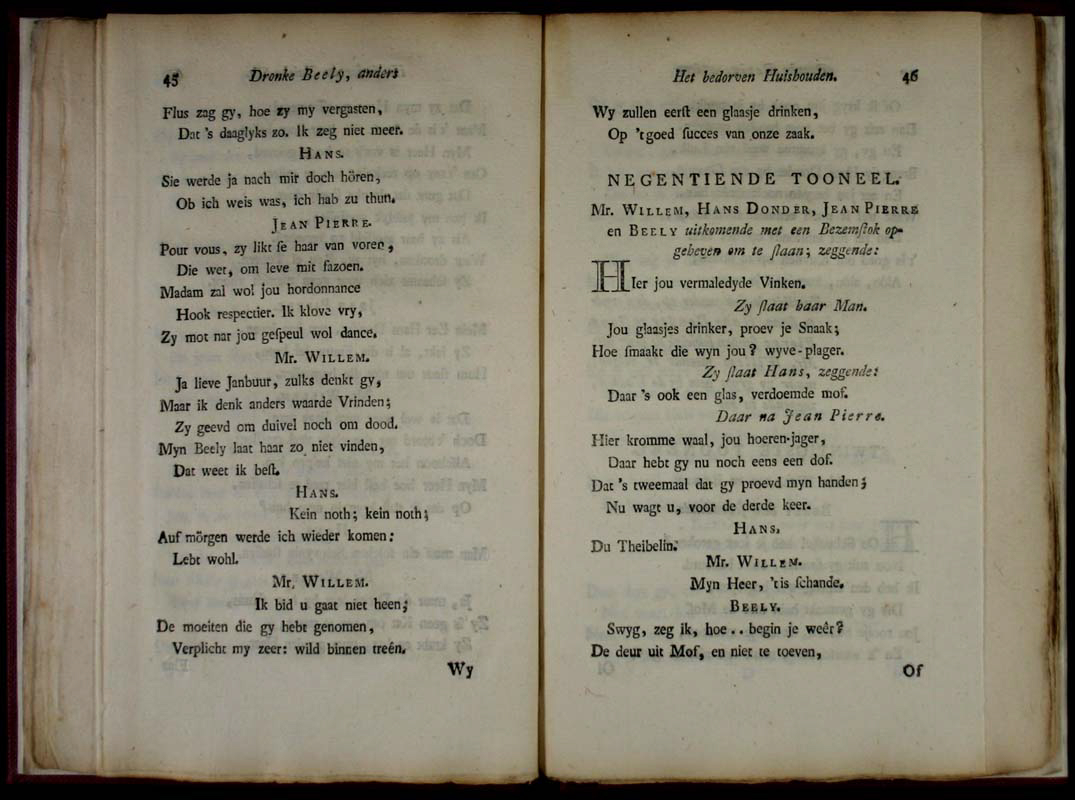 45 Dronke Beely, anders
Flus zag gy, hoe zy my vergasten,
Dat 's daaglyks zo. Ik zeg niet meer.
HANS.
Sie werde ja nach mir doch hören,
Ob ich weis was, ich hab zu thun.
JEAN PIERRE.
Pour vous, zy likt ſe haar van voren,
Die wet, om leve mit fazoen.
Madam zal wol jou hordonnance
Hook respectier. Ik klove vry,
Zy mot nar jou geſpeul wol dance.
Mr. WILLEM.
Ja lieve Janbuur, zulks denkt gy,
Maar ik denk anders waarde Vrinden;
Zy geevd om duivel noch om dood.
Myn Beely laat haar zo niet vinden,
Dat weet ik beſt.
HANS.
Kein noth; kein noth;
Auf mörgen werde ich wieder komen:
Lebt wohl.
Mr. WILLEM.
Ik bid u gaat niet heen;
De moeiten die gy hebt genomen,
Verplicht my zeer: wild binnen treên.
Wy
Het bedorven Huishouden. 46
Wy zullen eerſt een glaasje drinken,
Op 't goed ſucces van onze zaak.
NEGENTIENDE TOONEEL.
Mr. WILLEM, HANS DONDER, JEAN PIERRE
en BEELY uitkomende met een Bezemſtok op-
geheven om te ſlaan; zeggende:
HIer jou vermaledyde Vinken.
Zy ſlaat haar Man.
Jou glaasjes drinker, proev je Snaak;
Hoe ſmaakt die wyn jou? wyve-plager.
Zy ſlaat Hans, zeggende:
Daar 's ook een glas, verdoemde mof.
Daar na Jean Pierre.
Hier kromme waal, jou hoeren-jager,
Daar hebt gy nu noch eens een dof.
Dat 's tweemaal dat gy proevd myn handen;
Nu wagt u, voor de derde keer.
HANS.
Du Theibelin.
Mr. WILLEM.
Myn Heer, 't is ſchande.
BEELY.
Swyg, zeg ik, hoe .. begin je weêr?
De deur uit Mof, en niet te toeven,
Of